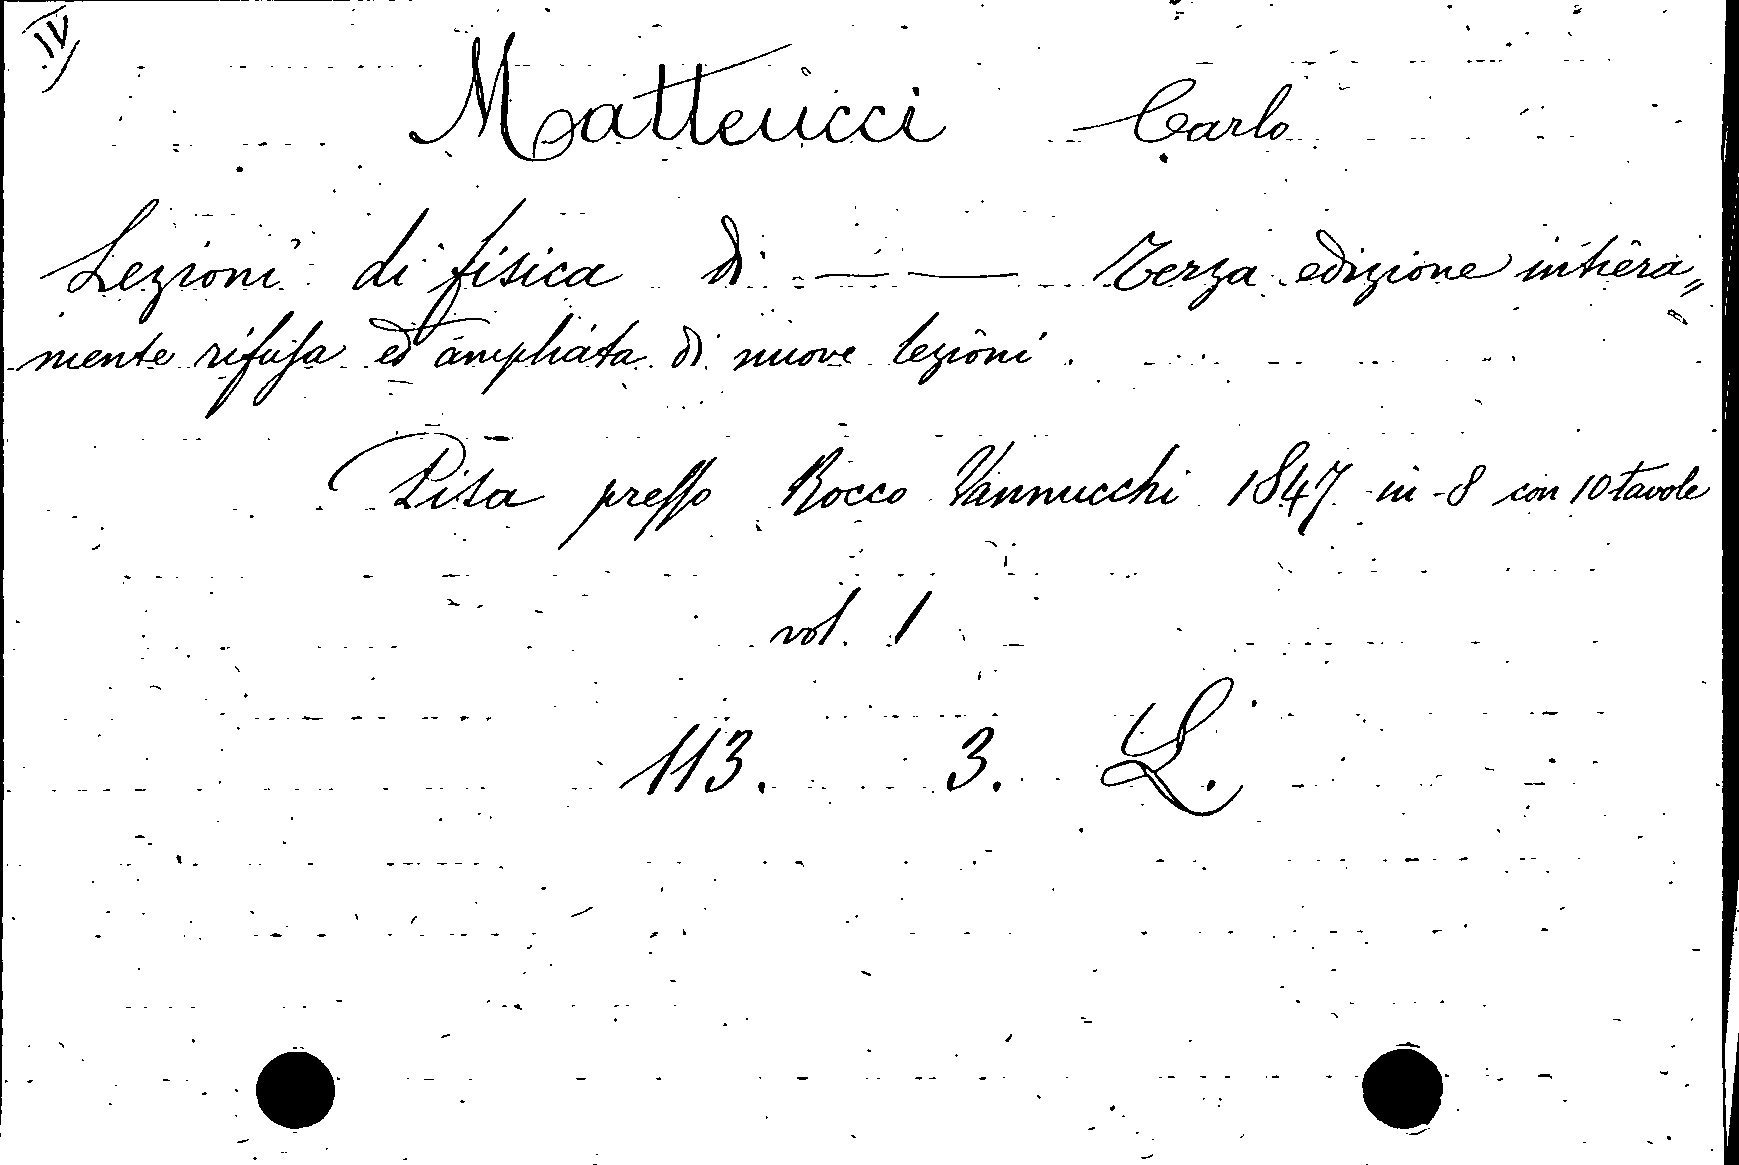 IV)
Matteucci Carlo
Lezioni di fisica di — — Terza edizione intiera„
mente rifusa ed ampliata di nuove lezioni.
Pisa presso Rocco Vannucchi 1847 in-8 con 10 tavole
vol. 1
113. 3. L.